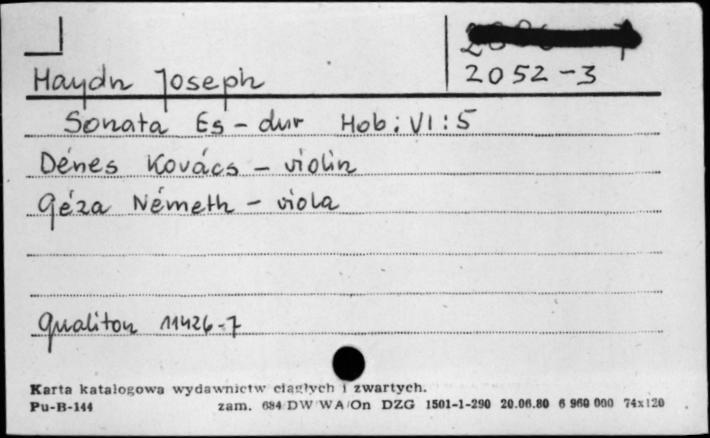 2052-3
Haydn Joseph
Sonata Es-dur Hob: VI:5
Dénes Kovács - violin
Géza Németh - viola
Qualiton 11426-7
Karta katalogowa wydawnictw ciągłych i zwartych.
Pu-B-144 zam. 684/DW/WA/On DZG 1501-1-290 20.06.80 6 960 000 74x120